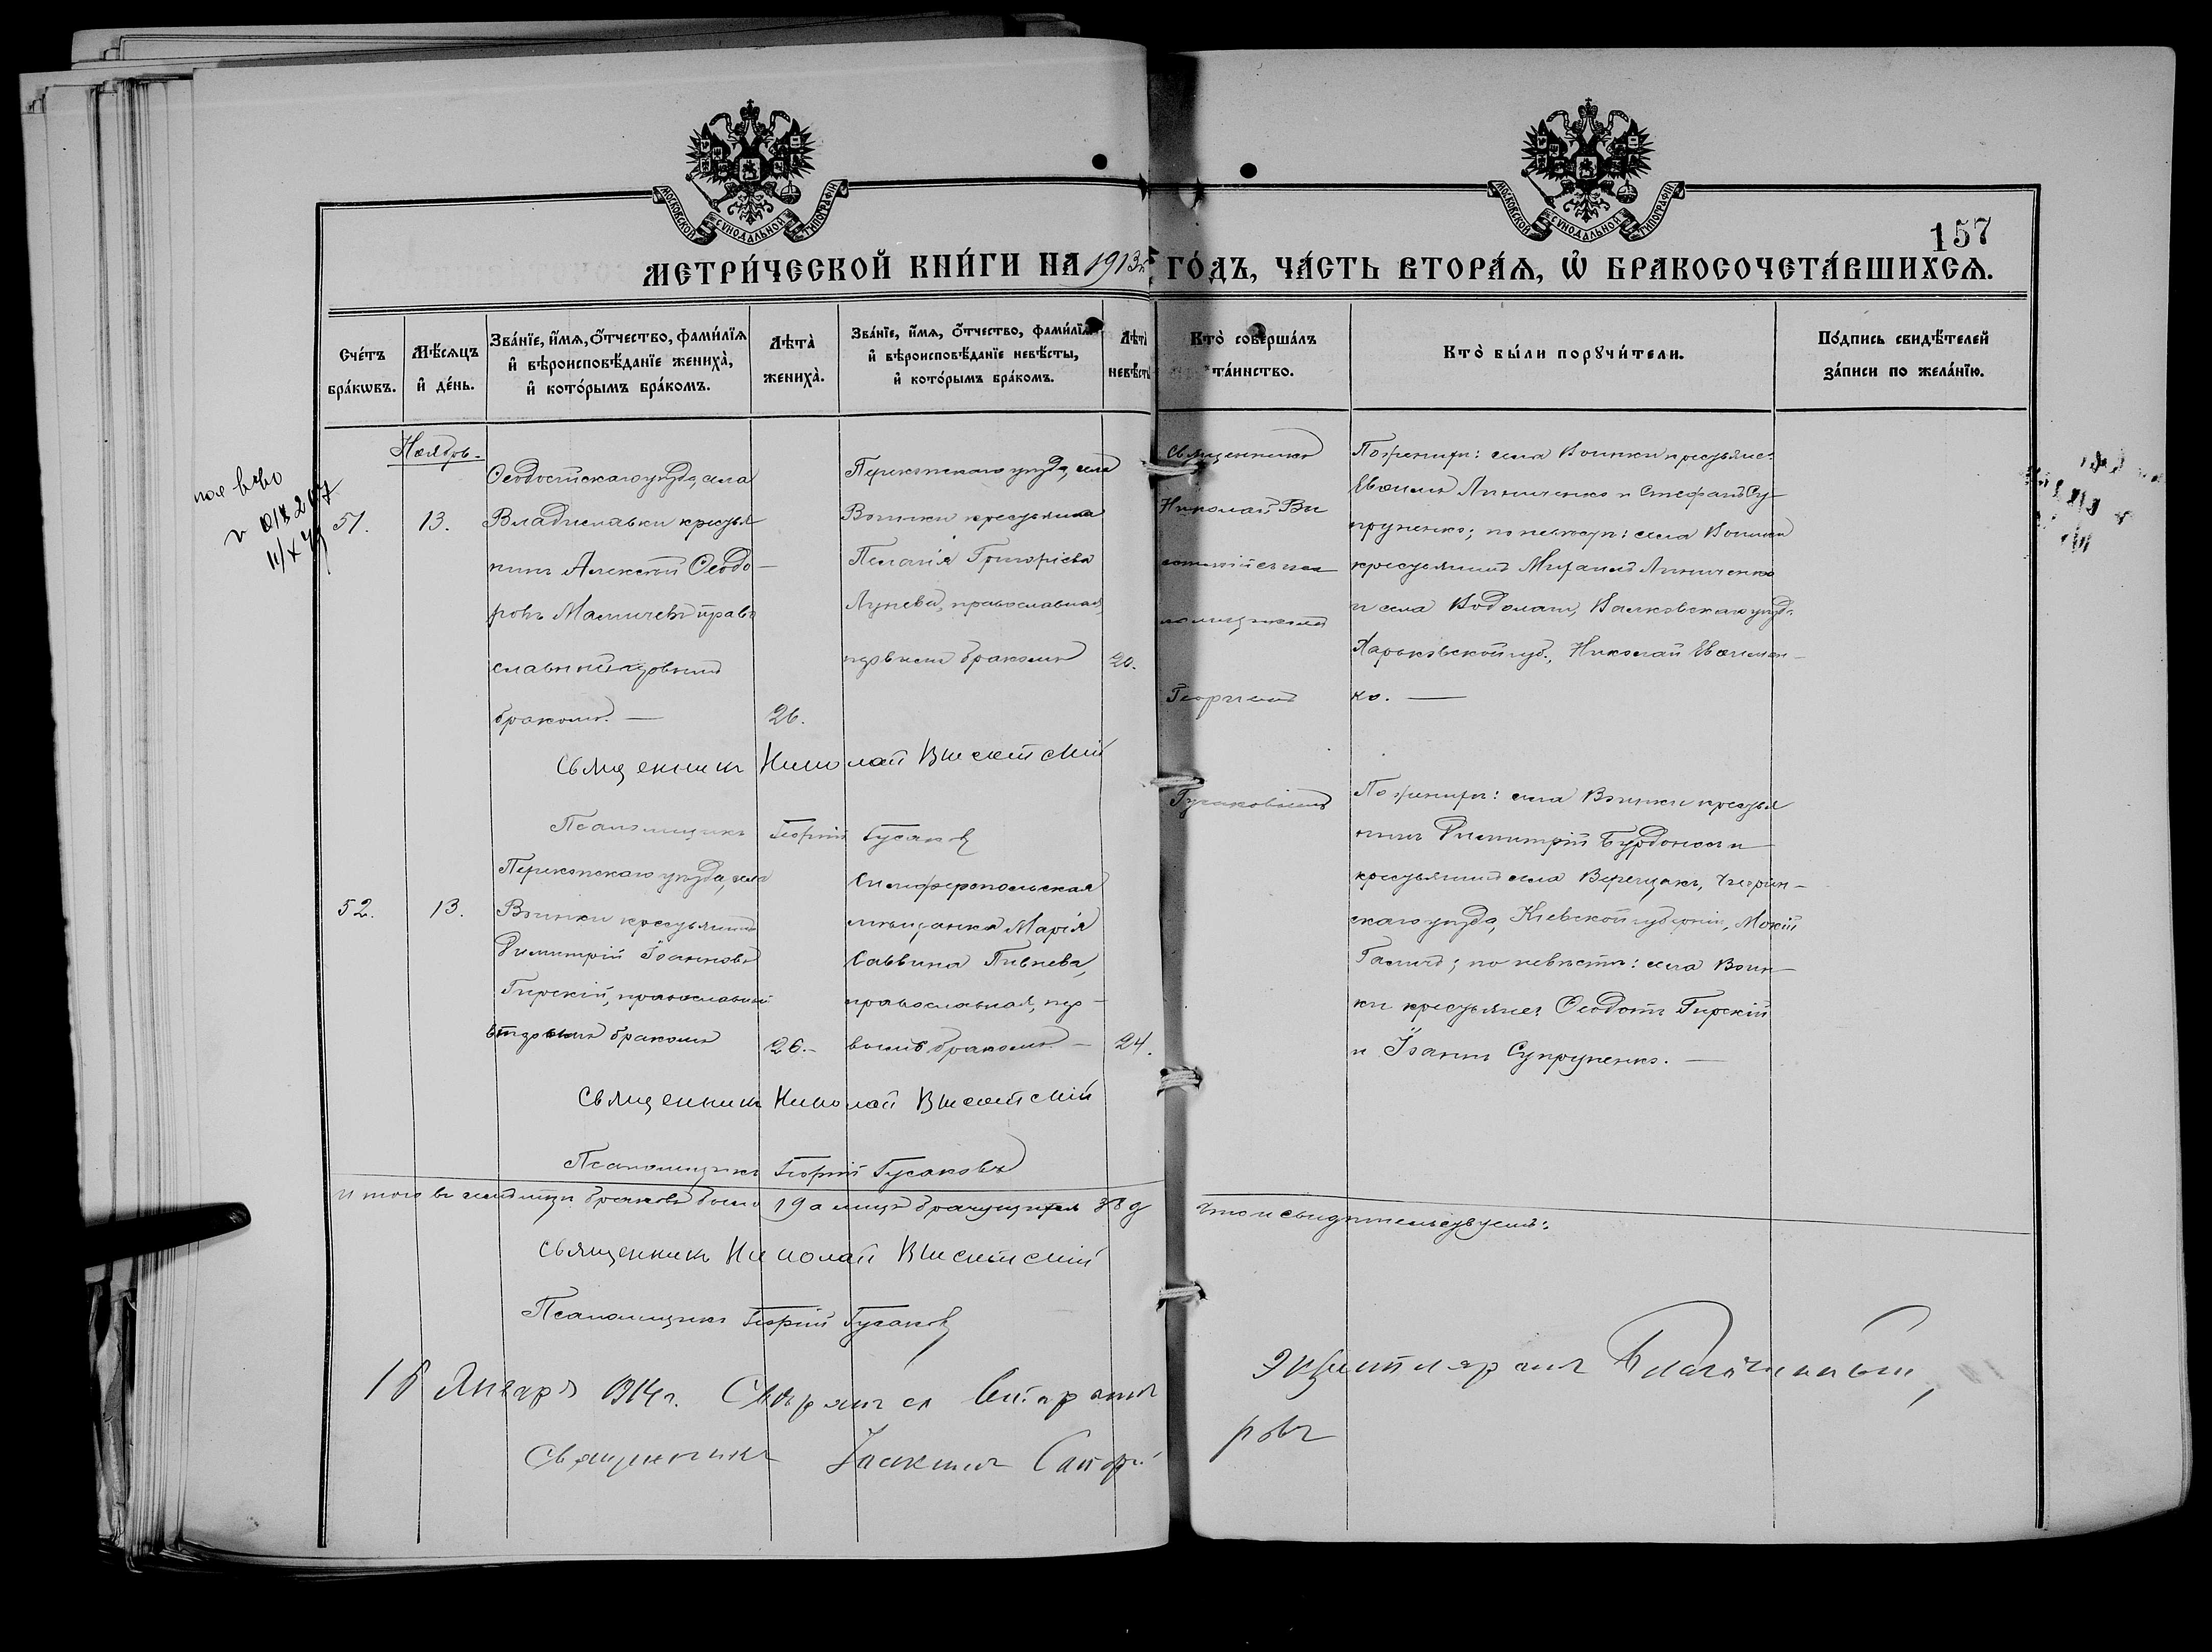 МОСКОВСКОЙ СУНОДАЛЬНОЙ ТИПОГРАФІИ
МОСКОВСКОЙ СУНОДАЛЬНОЙ ТИПОГРАФІИ
157
МЕТРИ́ЧЕСКОЙ КНИ́ГИ НА 1913 й ГО́ДЪ, ЧА́СТЬ ВТОРА́Ѧ, Ѡ БРАКОСОЧЕТА́ВШИХСѦ.
Сче́тъ бра́кѡвъ.
Мѣ́сяцъ и де́нь.
Зва́нїе, и́мѧ, о́тчество, фами́лїѧ и вѣроисповѣ́данїе жениха̀, и кото́рымъ бра́комъ.
Лѣта̀ жениха̀.
Зва́нїе, и́мѧ, о́тчество, фами́лїѧ и вѣроисповѣ́данїе невѣ́сты, и кото́рымъ бра́комъ.
Лѣта̀ невѣ́сты
Кто̀ соверша́лъ та́инство.
Кто̀ бы́ли порꙋчи́тели.
По́дпись свидѣ́телей за́писи по жела́нїю.
Ноябрь.
51.
13.
Ѳеодосійскаго уѣзда, села
Владиславки крестья
нинъ Алексѣй Ѳеодо-
ровъ Мамичевъ правo
славный первымъ
бракомъ. —
26.
Перекопскаго уѣзда, села
Воинки крестьянка
Пелагія Григорьева
Лунева, православная,
первымъ бракомъ
20.
Священникъ
Николай Ви
сотскій съ пса
ломщикомъ
Георгіемъ
Гусаковымъ
По женихѣ: села Воинки крестьяне:
Евѳимъ Линиченко и Стефанъ Су-
пруненко; по невѣстѣ: села Воинки
крестьянинъ Михаилъ Линиченко
и села Водолаги, Валковскаго уѣзда
Харьковской губ., Николай Евѳимен-
ко. —
Священникъ Николай Висотскій
Псаломщикъ Георгій Гусаковъ
52.
13.
Перекопскаго уѣзда, села
Воинки крестьянинъ
Димитрій Іоанновъ
Гирскій, православный
вторымъ бракомъ
26.-
Симферопольская
мѣщанка Марія
Саввина Пивнева,
православная, пер-
вымъ бракомъ —
24.
По женихѣ: села Воинки крестья
нинъ Димитрій Бурдонос и
крестьянинъ села Верещакъ, Чигирин-
скаго уѣзда, Кіевской губерніи, Мокій
Галичъ; по невѣстѣ: села Воин-
ки крестьяне: Ѳеодотъ Гирскій
и Іоаннъ Супруненко. —
Священникъ Николай Висотскій
Псаломщикъ Георгій Гусаковъ
браковъ было 19 а лицъ брачущихся 38
что и свидѣтельствуемъ:
Священникъ Николай Висотскій
Псаломщикъ Георгій Гусаковъ
Января 1914 г. экземпляромъ Благочинный,
Священникъ